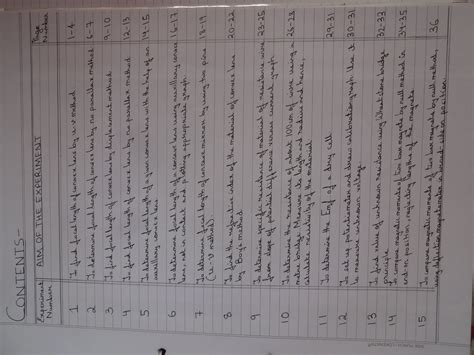 CONTENTS:-
Experiment Number AIM OF THE EXPERIMENT Page Number
1 To find focal length of convex lens by u-v method 1-4
2 To determine focal length of convex lens by no parallax method 6-7
3 To find focal length of convex lens by displacement method 9-10
4 To find focal length of concave lens by no parallax method 12
5 To determine focal length of a given convex lens with the help of an 14-15
auxiliary convex lens
6 To determine focal length of a convex lens using auxiliary convex 16-17
lens, not in contact and plotting appropriate graph
7 To determine focal length of concave mirror by using two pins 18-19
(u-v method)
8 To find the refractive index of the material of convex lens 20-22
by Boy's method
9 To determine specific resistance of material of resistance wire 23-25
from slope of potential difference versus current graph
10 To determine the resistance of about 100 cm of wire using a 26-28
metre bridge. Measure its length and radius and hence,
calculate resistivity of the material
11 To determine the Emf of a dry cell 29
12 To set up potentiometer and draw calibration graph. Use it 30-31
to measure unknown voltage.
13 To find value of unknown resistance using Wheatstone bridge 32-33
principle
14 To compare magnetic moments of two bar magnets by null method in 34-35
end on position, neglecting lengths of the magnets
15 To compare magnetic moments of two bar magnets by null methods, 36
using deflection magnetometer in broad side on position